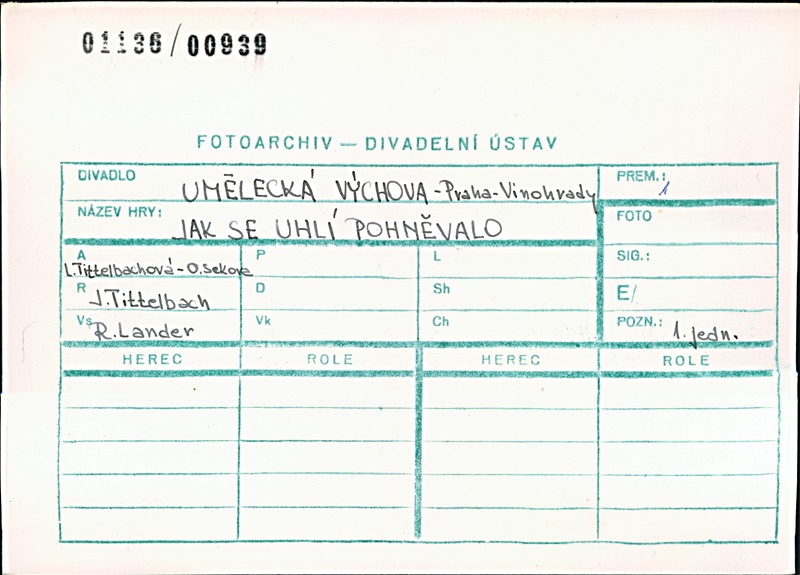 01136/00939
FOTOARCHIV — DIVADELNÍ ÚSTAV
DIVADLO UMĚLECKÁ VÝCHOVA - Praha - Vinohrady PREM.: 1
NÁZEV HRY: JAK SE UHLÍ POHNĚVALO FOTO
A L. Tittelbachová - O. Sekora P L SIG.:
R J. Tittelbach D Sh E/
Vs R. Lander Vk Ch POZN.: 1. jedn.
HEREC ROLE HEREC ROLE